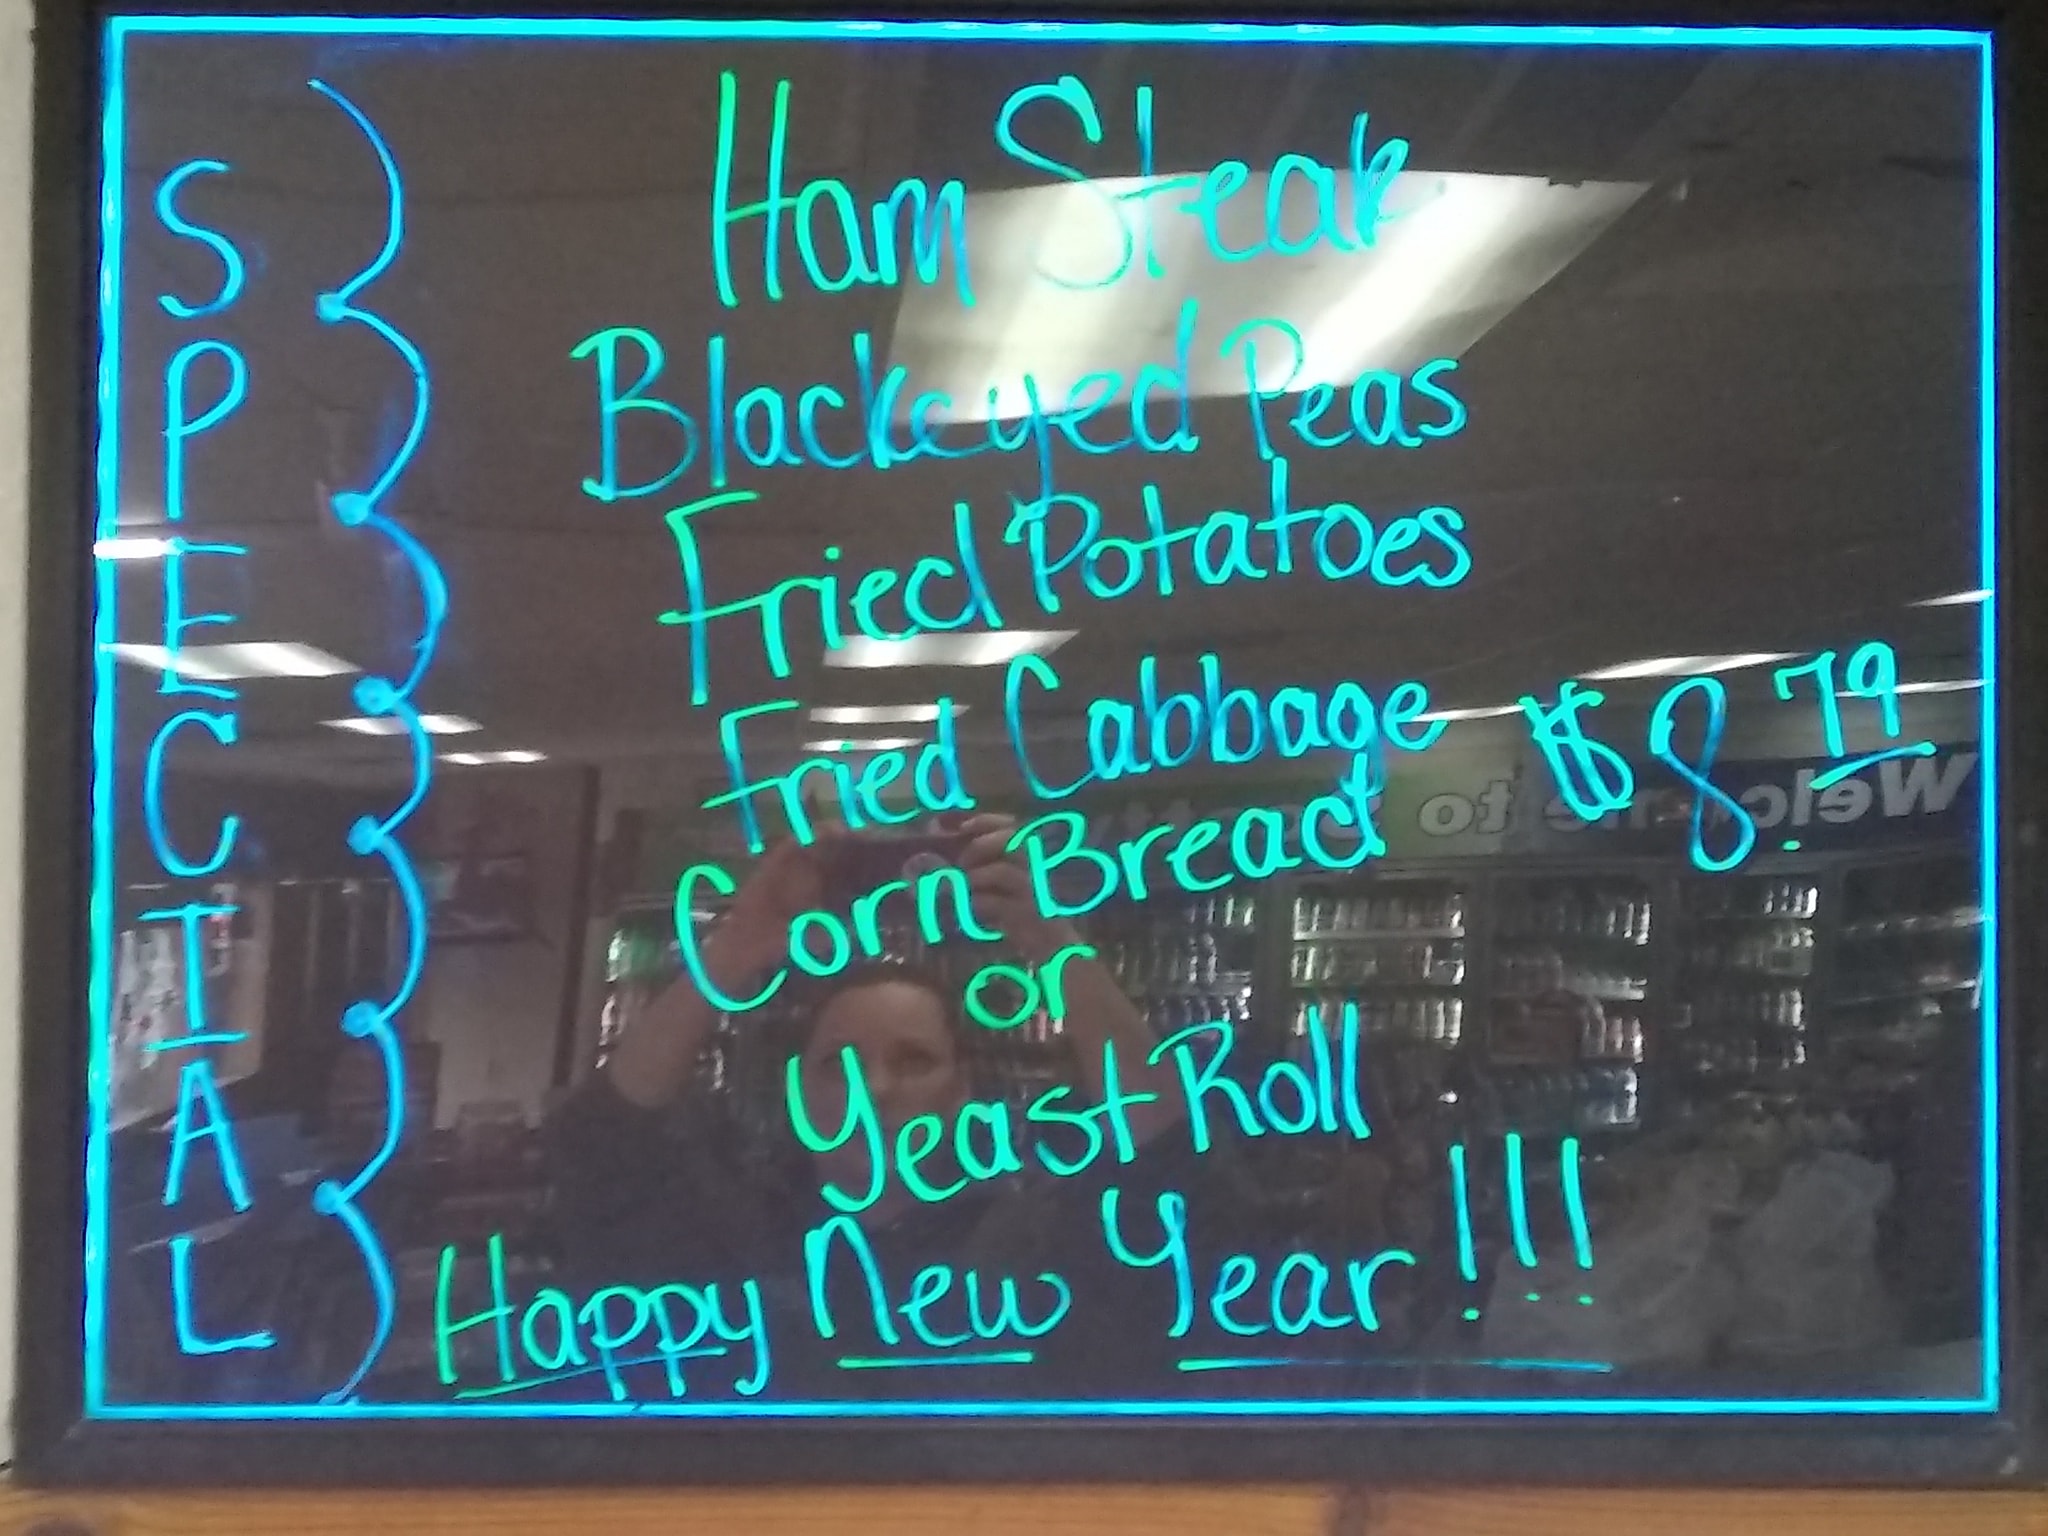 SPECIAL
Ham Steak
Blackeyed Peas
Fried Potatoes
Fried Cabbage
$8.79
Corn Bread
or
Yeast Roll
Happy New Year!!!
Welcome to